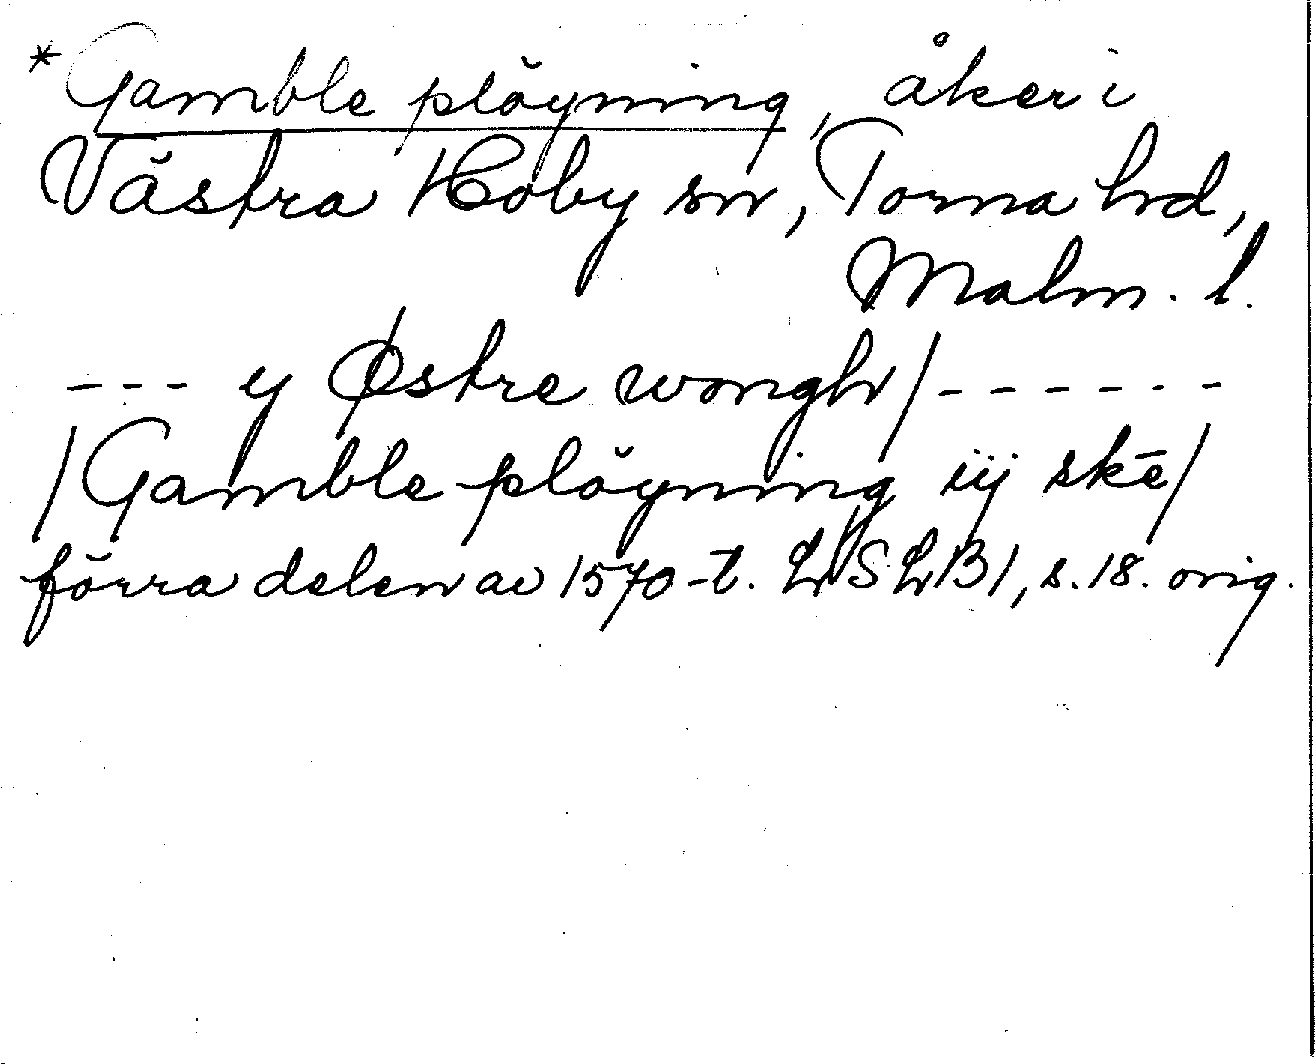 *Gamble plöyning, åker i
Västra Hoby sn, Torna hd,
Malm. l.
--- y Østre wongh/------
/Gamble plöyning iij skē/
förra delen av 1570-t. LUSLB1, s. 18. orig.